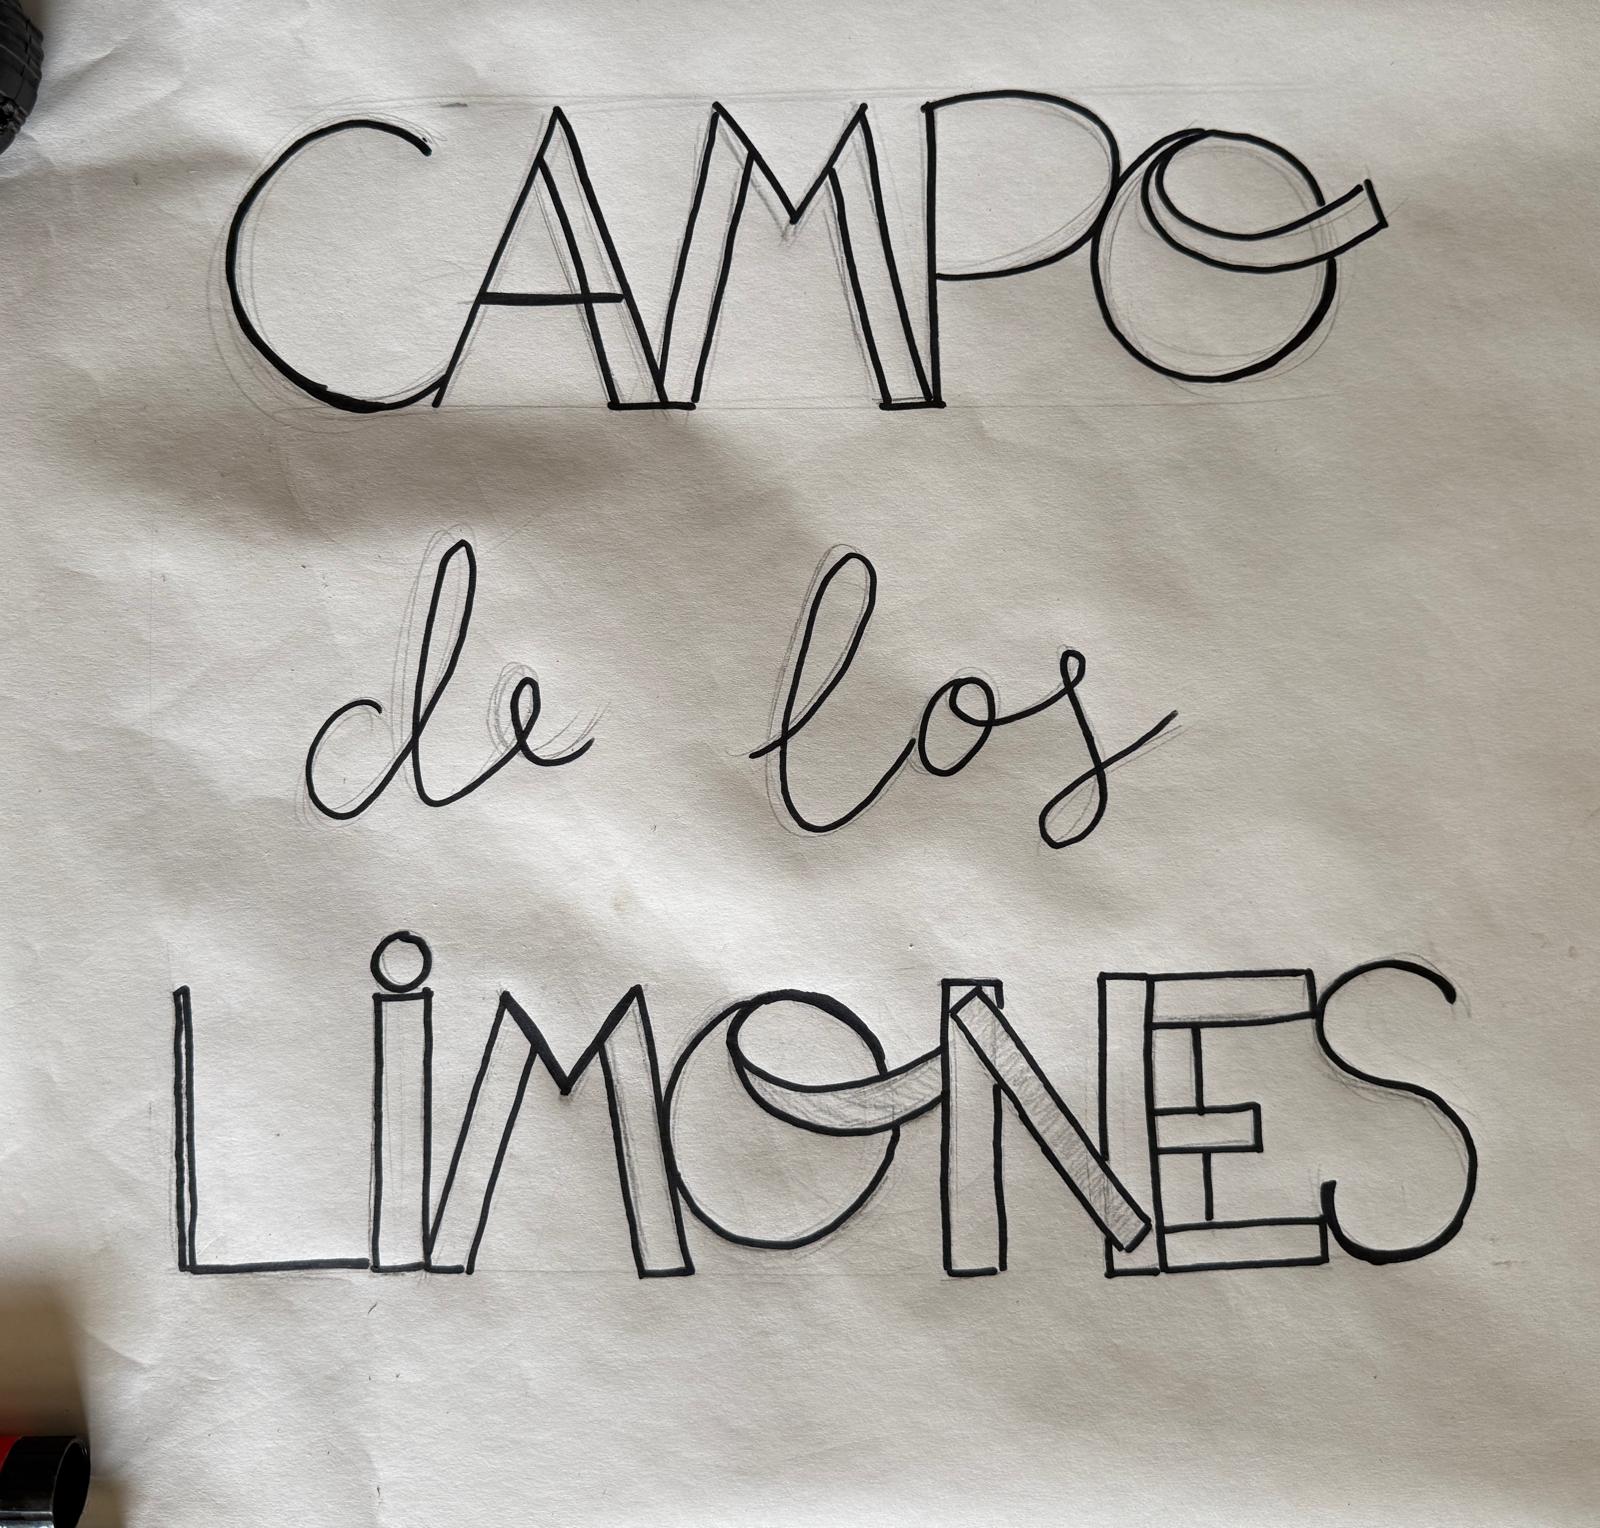 CAMPO
de los
LiMONES